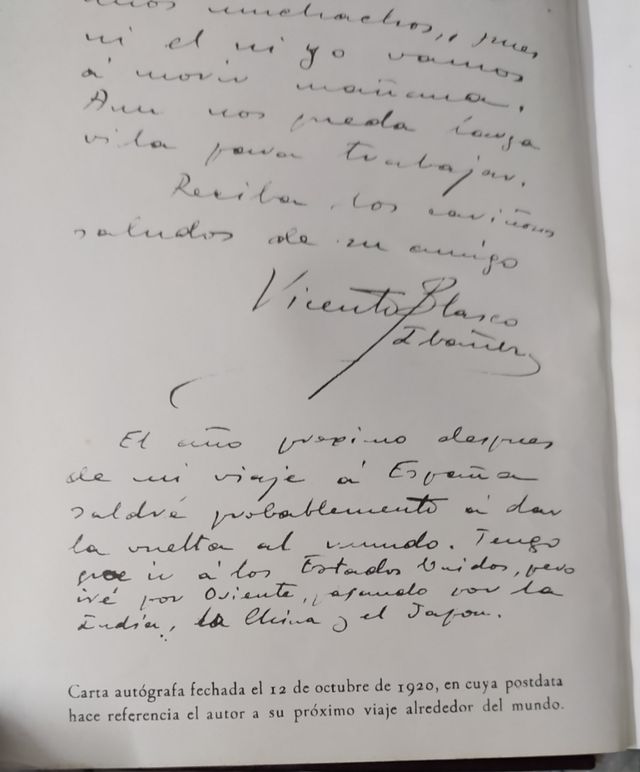 muchachos, pues
ni el ni yo vamos
á morir mañana.
Aun nos queda larga
vida para trabajar.
Reciba los cariñosos
saludos de su amigo
Vicente Blasco
Ibañez
El año proximo despues
de mi viaje á España
saldré probablemente á dar
la vuelta al mundo. Tengo
que ir á los Estados Unidos, pero
iré por Oriente, pasando por la
India, la China y el Japon.
Carta autógrafa fechada el 12 de octubre de 1920, en cuya postdata
hace referencia el autor a su próximo viaje alrededor del mundo.